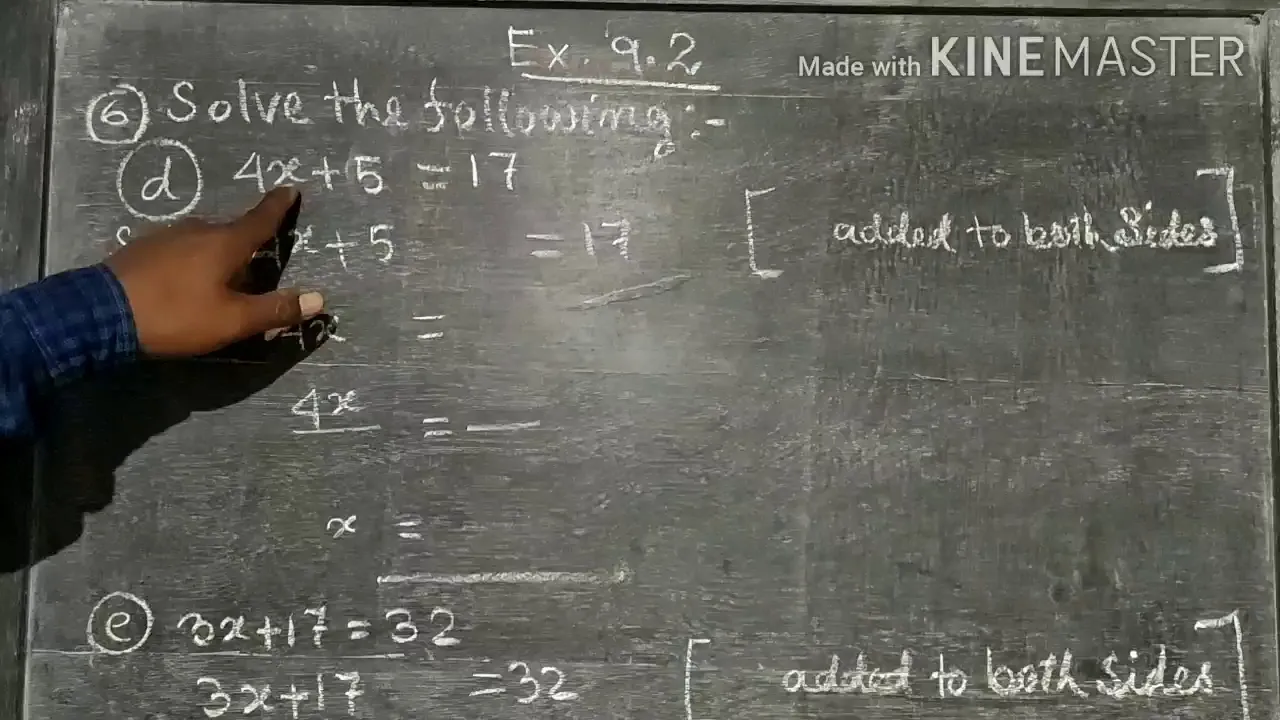 Ex. 9.2
Made with KINEMASTER
6 Solve the following :-
d 4x+5 = 17
x+5 = 17 [ added to both sides ]
4x =
4x = —
x =
e 3x+17 = 32
3x+17 = 32 [ added to both sides ]